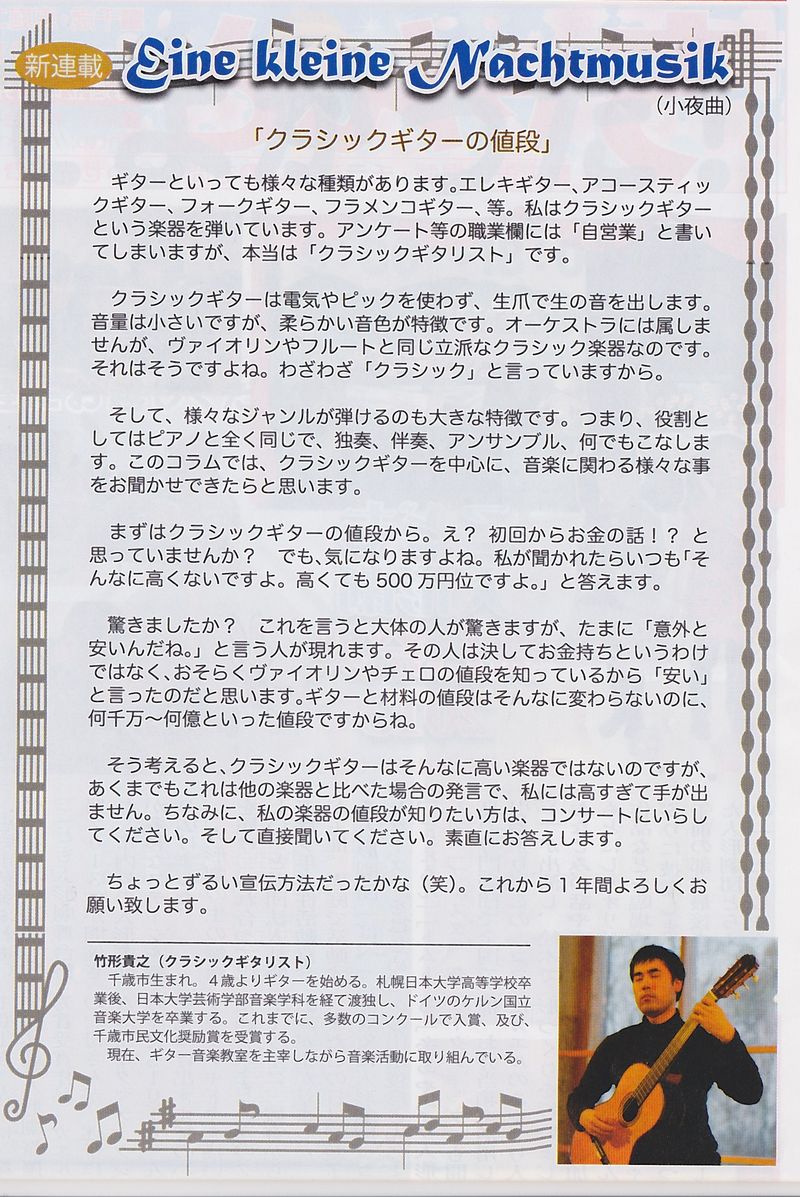 新連載
Eine kleine Nachtmusik
（小夜曲）
「クラシックギターの値段」
ギターといっても様々な種類があります。エレキギター、アコースティッ
クギター、フォークギター、フラメンコギター、等。私はクラシックギター
という楽器を弾いています。アンケート等の職業欄には「自営業」と書い
てしまいますが、本当は「クラシックギタリスト」です。
クラシックギターは電気やピックを使わず、生爪で生の音を出します。
音量は小さいですが、柔らかい音色が特徴です。オーケストラには属しま
せんが、ヴァイオリンやフルートと同じ立派なクラシック楽器なのです。
それはそうですよね。わざわざ「クラシック」と言っていますから。
そして、様々なジャンルが弾けるのも大きな特徴です。つまり、役割と
してはピアノと全く同じで、独奏、伴奏、アンサンブル、何でもこなしま
す。このコラムでは、クラシックギターを中心に、音楽に関わる様々な事
をお聞かせできたらと思います。
まずはクラシックギターの値段から。え？ 初回からお金の話！？ と
思っていませんか？　でも、気になりますよね。私が聞かれたらいつも「そ
んなに高くないですよ。高くても 500 万円位ですよ。」と答えます。
驚きましたか？　これを言うと大体の人が驚きますが、たまに「意外と
安いんだね。」と言う人が現れます。その人は決してお金持ちというわけ
ではなく、おそらくヴァイオリンやチェロの値段を知っているから「安い」
と言ったのだと思います。ギターと材料の値段はそんなに変わらないのに、
何千万～何億といった値段ですからね。
そう考えると、クラシックギターはそんなに高い楽器ではないのですが、
あくまでもこれは他の楽器と比べた場合の発言で、私には高すぎて手が出
ません。ちなみに、私の楽器の値段が知りたい方は、コンサートにいらし
てください。そして直接聞いてください。素直にお答えします。
ちょっとずるい宣伝方法だったかな（笑）。これから 1 年間よろしくお
願い致します。
竹形貴之（クラシックギタリスト）
千歳市生まれ。４歳よりギターを始める。札幌日本大学高等学校卒
業後、日本大学芸術学部音楽学科を経て渡独し、ドイツのケルン国立
音楽大学を卒業する。これまでに、多数のコンクールで入賞、及び、
千歳市民文化奨励賞を受賞する。
現在、ギター音楽教室を主宰しながら音楽活動に取り組んでいる。